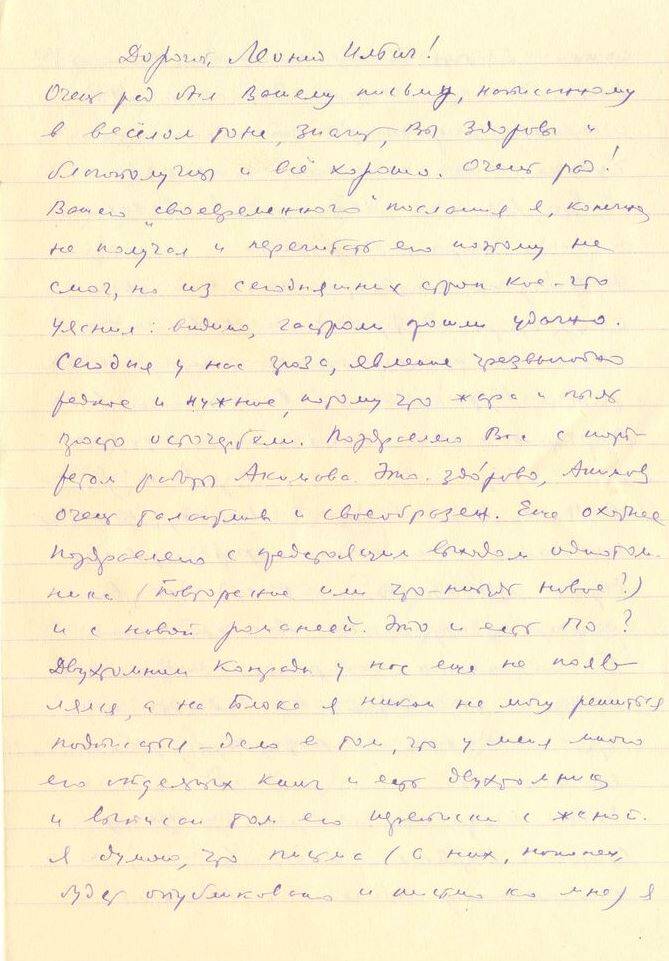 Дорогой, Леонид Ильич!
Очень рад был Вашему письму, написанному
в весёлом тоне, значит, Вы здоровы и
благополучны и всё хорошо. Очень рад!
Вашего "своевременного" послания я, конечно,
не получал и перечитать его поэтому не
смог, но из сегодняшних строк кое-что
уяснил: видимо, гастроли прошли удачно.
Сегодня у нас гроза, явление чрезвычайно
редкое и нужное, потому что жара и пыль
просто осточертели. Поздравляю Вас с порт-
ретом работы Акимова. Это здо́рово, Акимов
очень талантлив и своеобразен. Еще охотнее
поздравляю с предстоящим выходом однотом-
ника (Повторение или что-нибудь новое?)
и с новой романсей. Это и есть По?
Двухтомник Конрада у нас еще не появ-
лялся, а на Блока я никак не могу решиться
подписаться – дело в том, что у меня много
его отдельных книг и есть двухтомник
и выписал том его переписки с женой.
Я думаю, что письма (о них, наконец,
будет опубликовано и ко мне) я